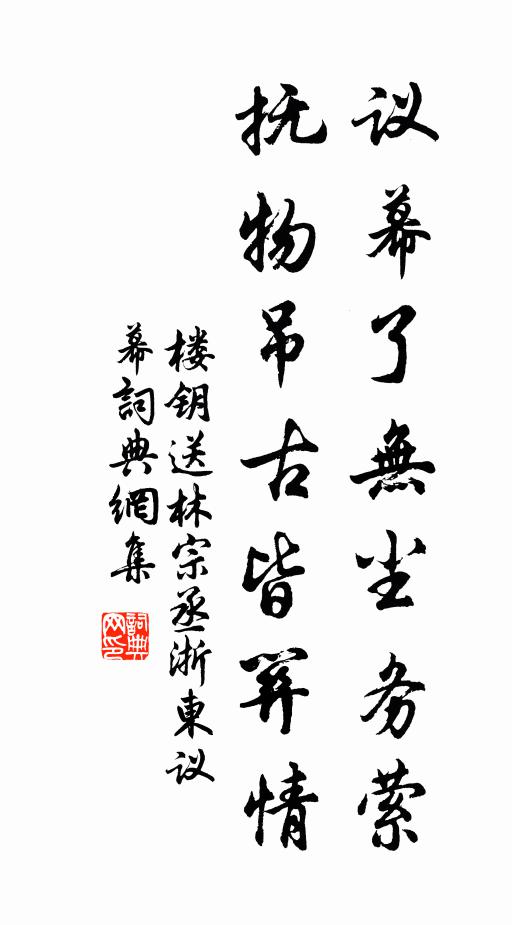 议幕了無尘务萦
抚物吊古皆關情
楼钥送林宗丞浙東议
幕詞典網集
詞典
网印